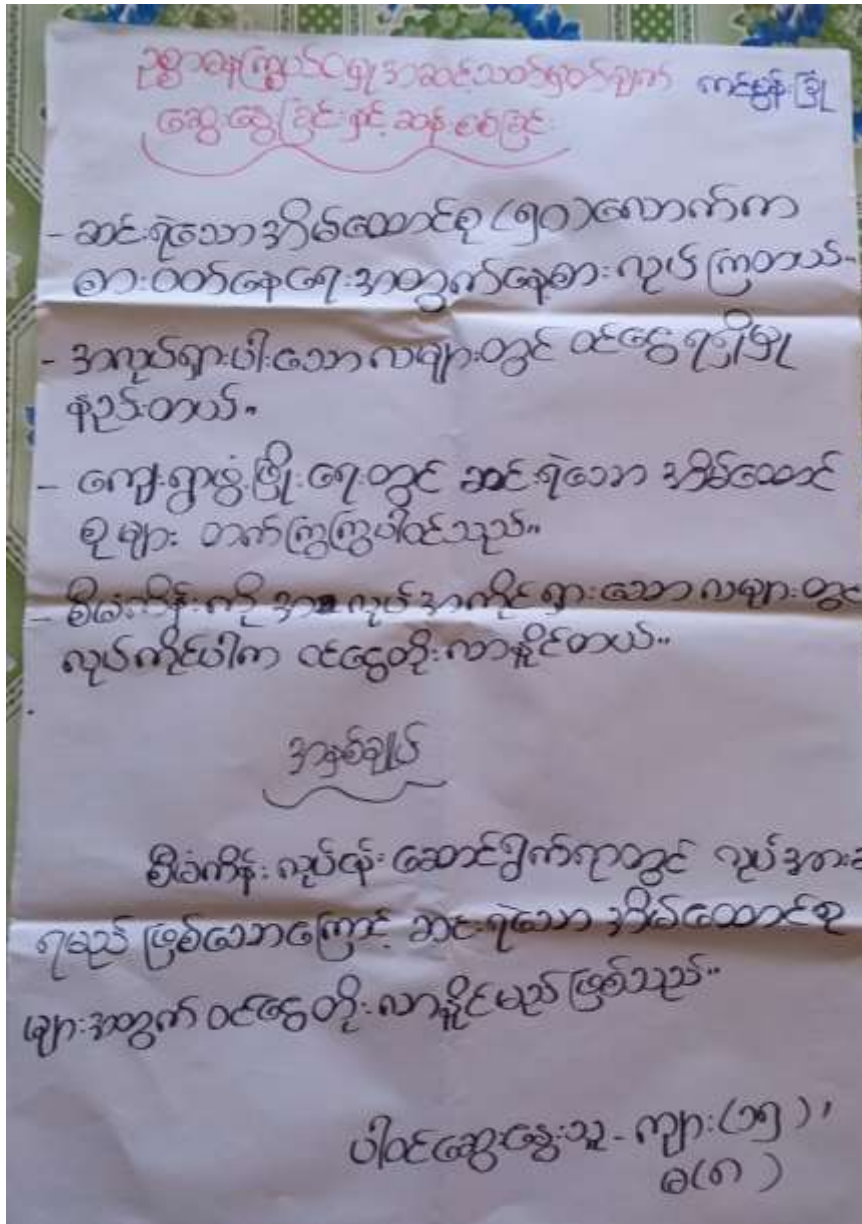 ဥစ္စာဓနကြွယ်ဝမှုအဆင့်သတ်မှတ်ချက် ကင်မွန်းခြုံ
ဆွေးနွေခြင်းနှင့် ဆန်းစစ်ခြင်း
- ဆင်းရဲသောအိမ်ထောင်စု (၅၀)လောက်က
စားဝတ်နေရေးအတွက်နေ့စားလုပ်ကြတယ်။
- အလုပ်ရှားပါးသောလများတွင် ဝင်ငွေရရှိမှု
နည်းတယ်။
- ကျေးရွာဖွံ့ဖြိုးရေးတွင် ဆင်းရဲသော အိမ်ထောင်
စုများ တက်ကြွကြွပါဝင်သည်။
- စီမံကိန်းကို အလုပ်အကိုင်ရှားသောလများတွင
လုပ်ကိုင်ပါက ဝင်ငွေတိုးလာနိူင်တယ်။
အနှစ်ချုပ်
စီမံကိန်းလုပ်ငန်းဆောင်ရွက်ရာတွင် လုပ်အားခ
ရမည် ဖြစ်သောကြောင့် ဆင်းရဲသော အိမ်ထောင်စု
များအတွက် ဝင်ငွေတိုးလာနိူင်မည်ဖြစ်သည်။
ပါဝင်ဆွေးနွေးသူ - ကျား(၁၅)၊
မ(၈)